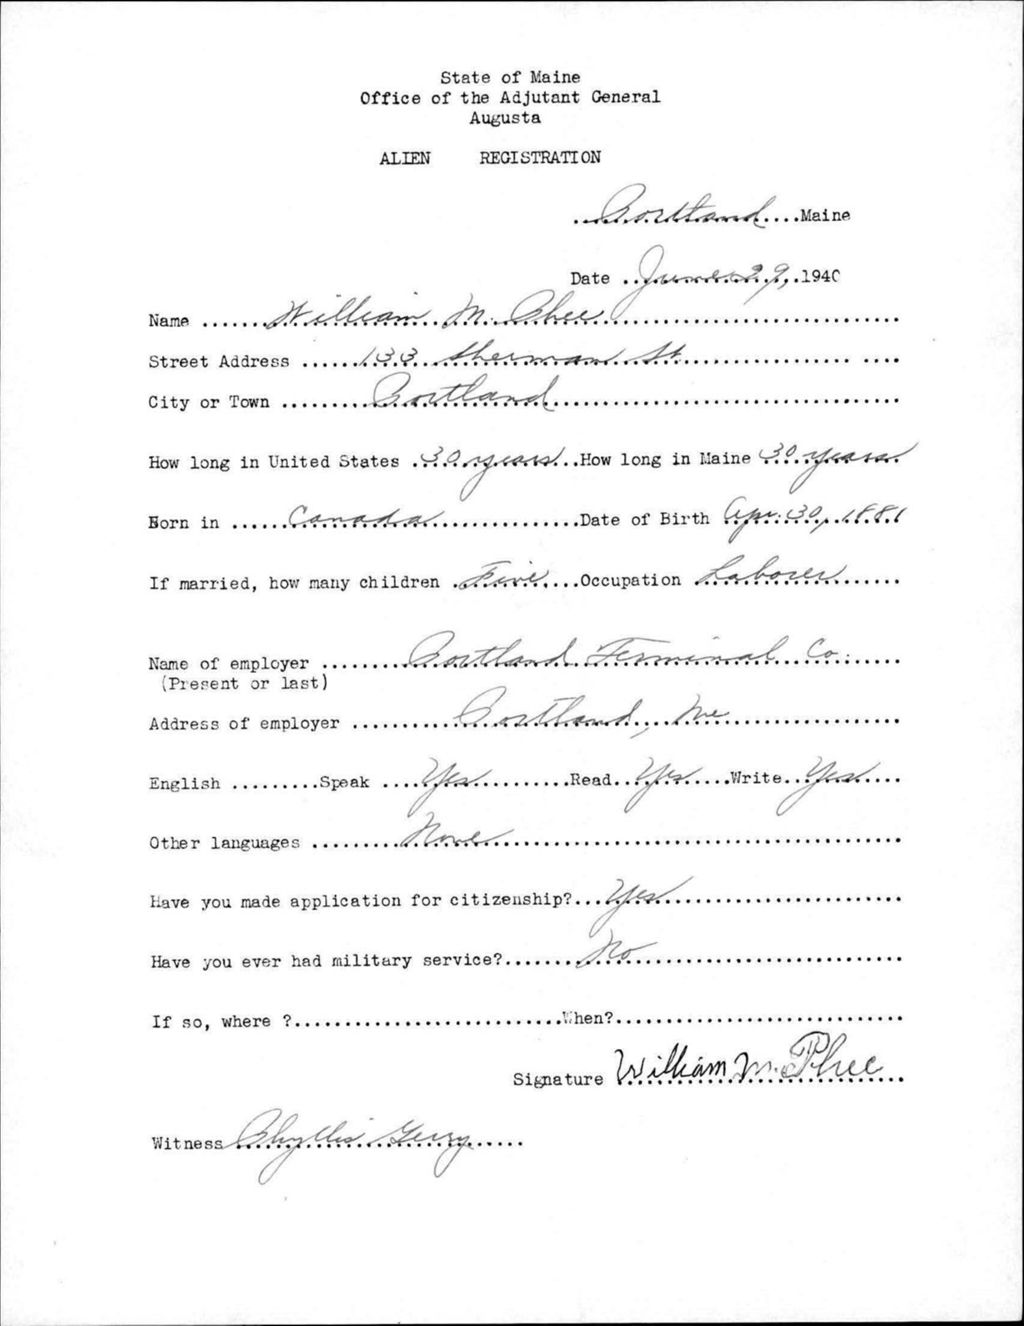 State of Maine
Office of the Adjutant General
Augusta
ALIEN REGISTRATION
Portland Maine
Date June 29, 1940
Name William M. Phee
Street Address 133 Sherman St
City or Town Portland
How long in United States 30 years How long in Maine 30 years
Born in Canada Date of Birth Apr. 30, 1881
If married, how many children Five Occupation Laborer
Name of employer Portland Terminal Co.
(Present or last)
Address of employer Portland, Me
English Speak Yes Read Yes Write Yes
Other languages None
Have you made application for citizenship? Yes
Have you ever had military service? No
If so, where ? When?
Signature William M. Phee
Witness Phyllis Gerry